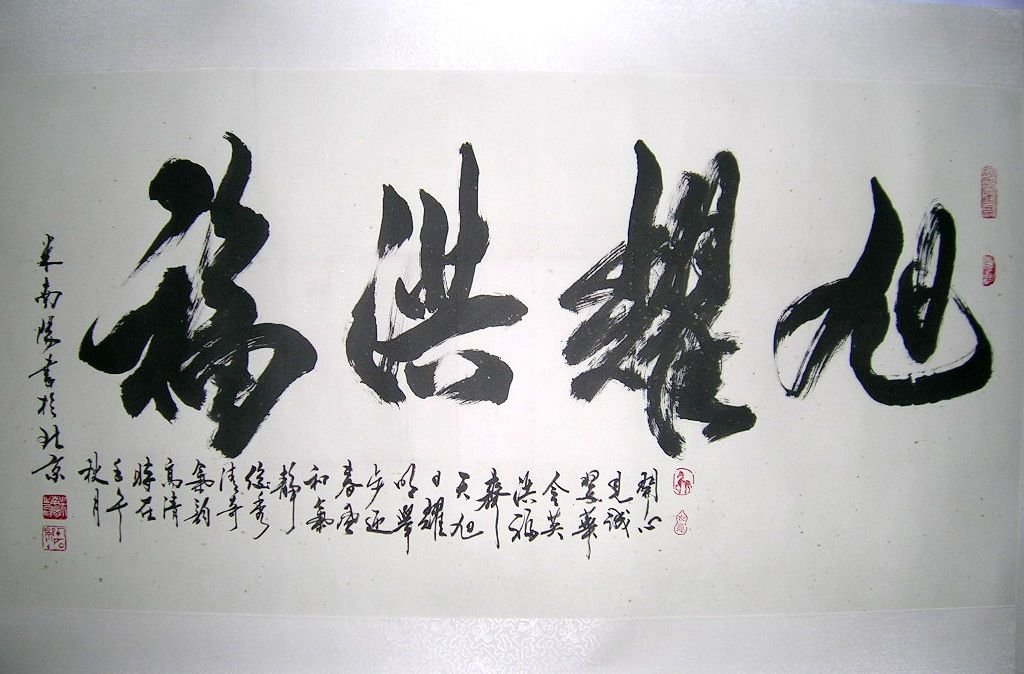 旭耀洪福
開心
見誠
翌華
令英
洪福
齊
天旭
日耀
明舉
步迎
春風
和氣
靜
悠秀
清奇
氣韵
高清
時在
壬午
秋月
米南陽書於北京